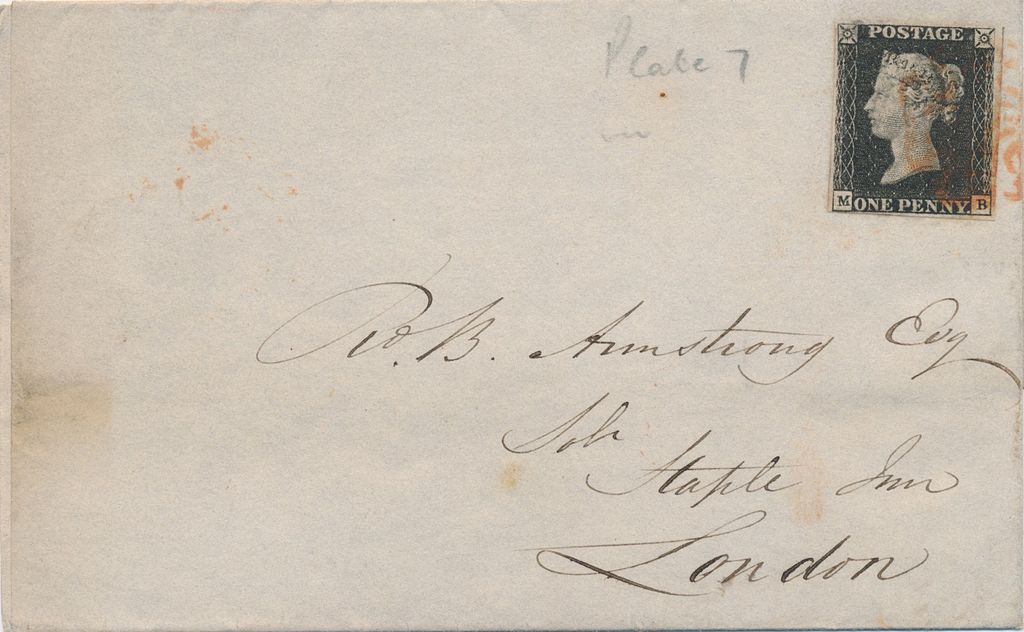 Plate 7
POSTAGE
M ONE PENNY. B
Rd. B. Armstrong Esq
Solr
Staple Inn
London